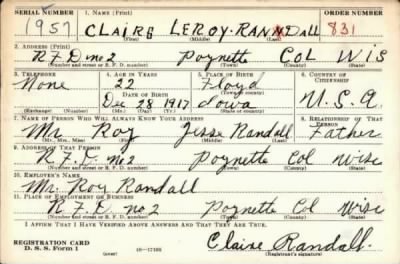 SERIAL NUMBER 1. NAME (Print) ORDER NUMBER
1957 CLAIRE LEROY RANDALL 831
(First) (Middle) (Last)
2. ADDRESS (Print)
R.F.D no 2 Poynette COL WIS
(Number and street or R. F. D. number) (Town) (County) (State)
3. TELEPHONE 4. AGE IN YEARS 5. PLACE OF BIRTH 6. COUNTRY OF CITIZENSHIP
None 22 Floyd
DATE OF BIRTH
Dec 28 1917 Iowa U.S.A.
(Exchange) (Number) (Mo.) (Day) (Yr.) (State or country)
7. NAME OF PERSON WHO WILL ALWAYS KNOW YOUR ADDRESS 8. RELATIONSHIP OF THAT PERSON
Mr. Roy Jesse Randall Father
(Mr., Mrs., Miss) (First) (Middle) (Last)
9. ADDRESS OF THAT PERSON
R.F.D. no 2 Poynette Col Wisc
(Number and street or R. F. D. number) (Town) (County) (State)
10. EMPLOYER'S NAME
Mr. Roy Randall
11. PLACE OF EMPLOYMENT OR BUSINESS
R.F.D. no 2 Poynette Col Wisc
(Number and street or R. F. D. number) (Town) (County) (State)
I AFFIRM THAT I HAVE VERIFIED ABOVE ANSWERS AND THAT THEY ARE TRUE.
REGISTRATION CARD
D. S. S. Form 1 (over) 16-17105 Claire Randall.
(Registrant's signature)